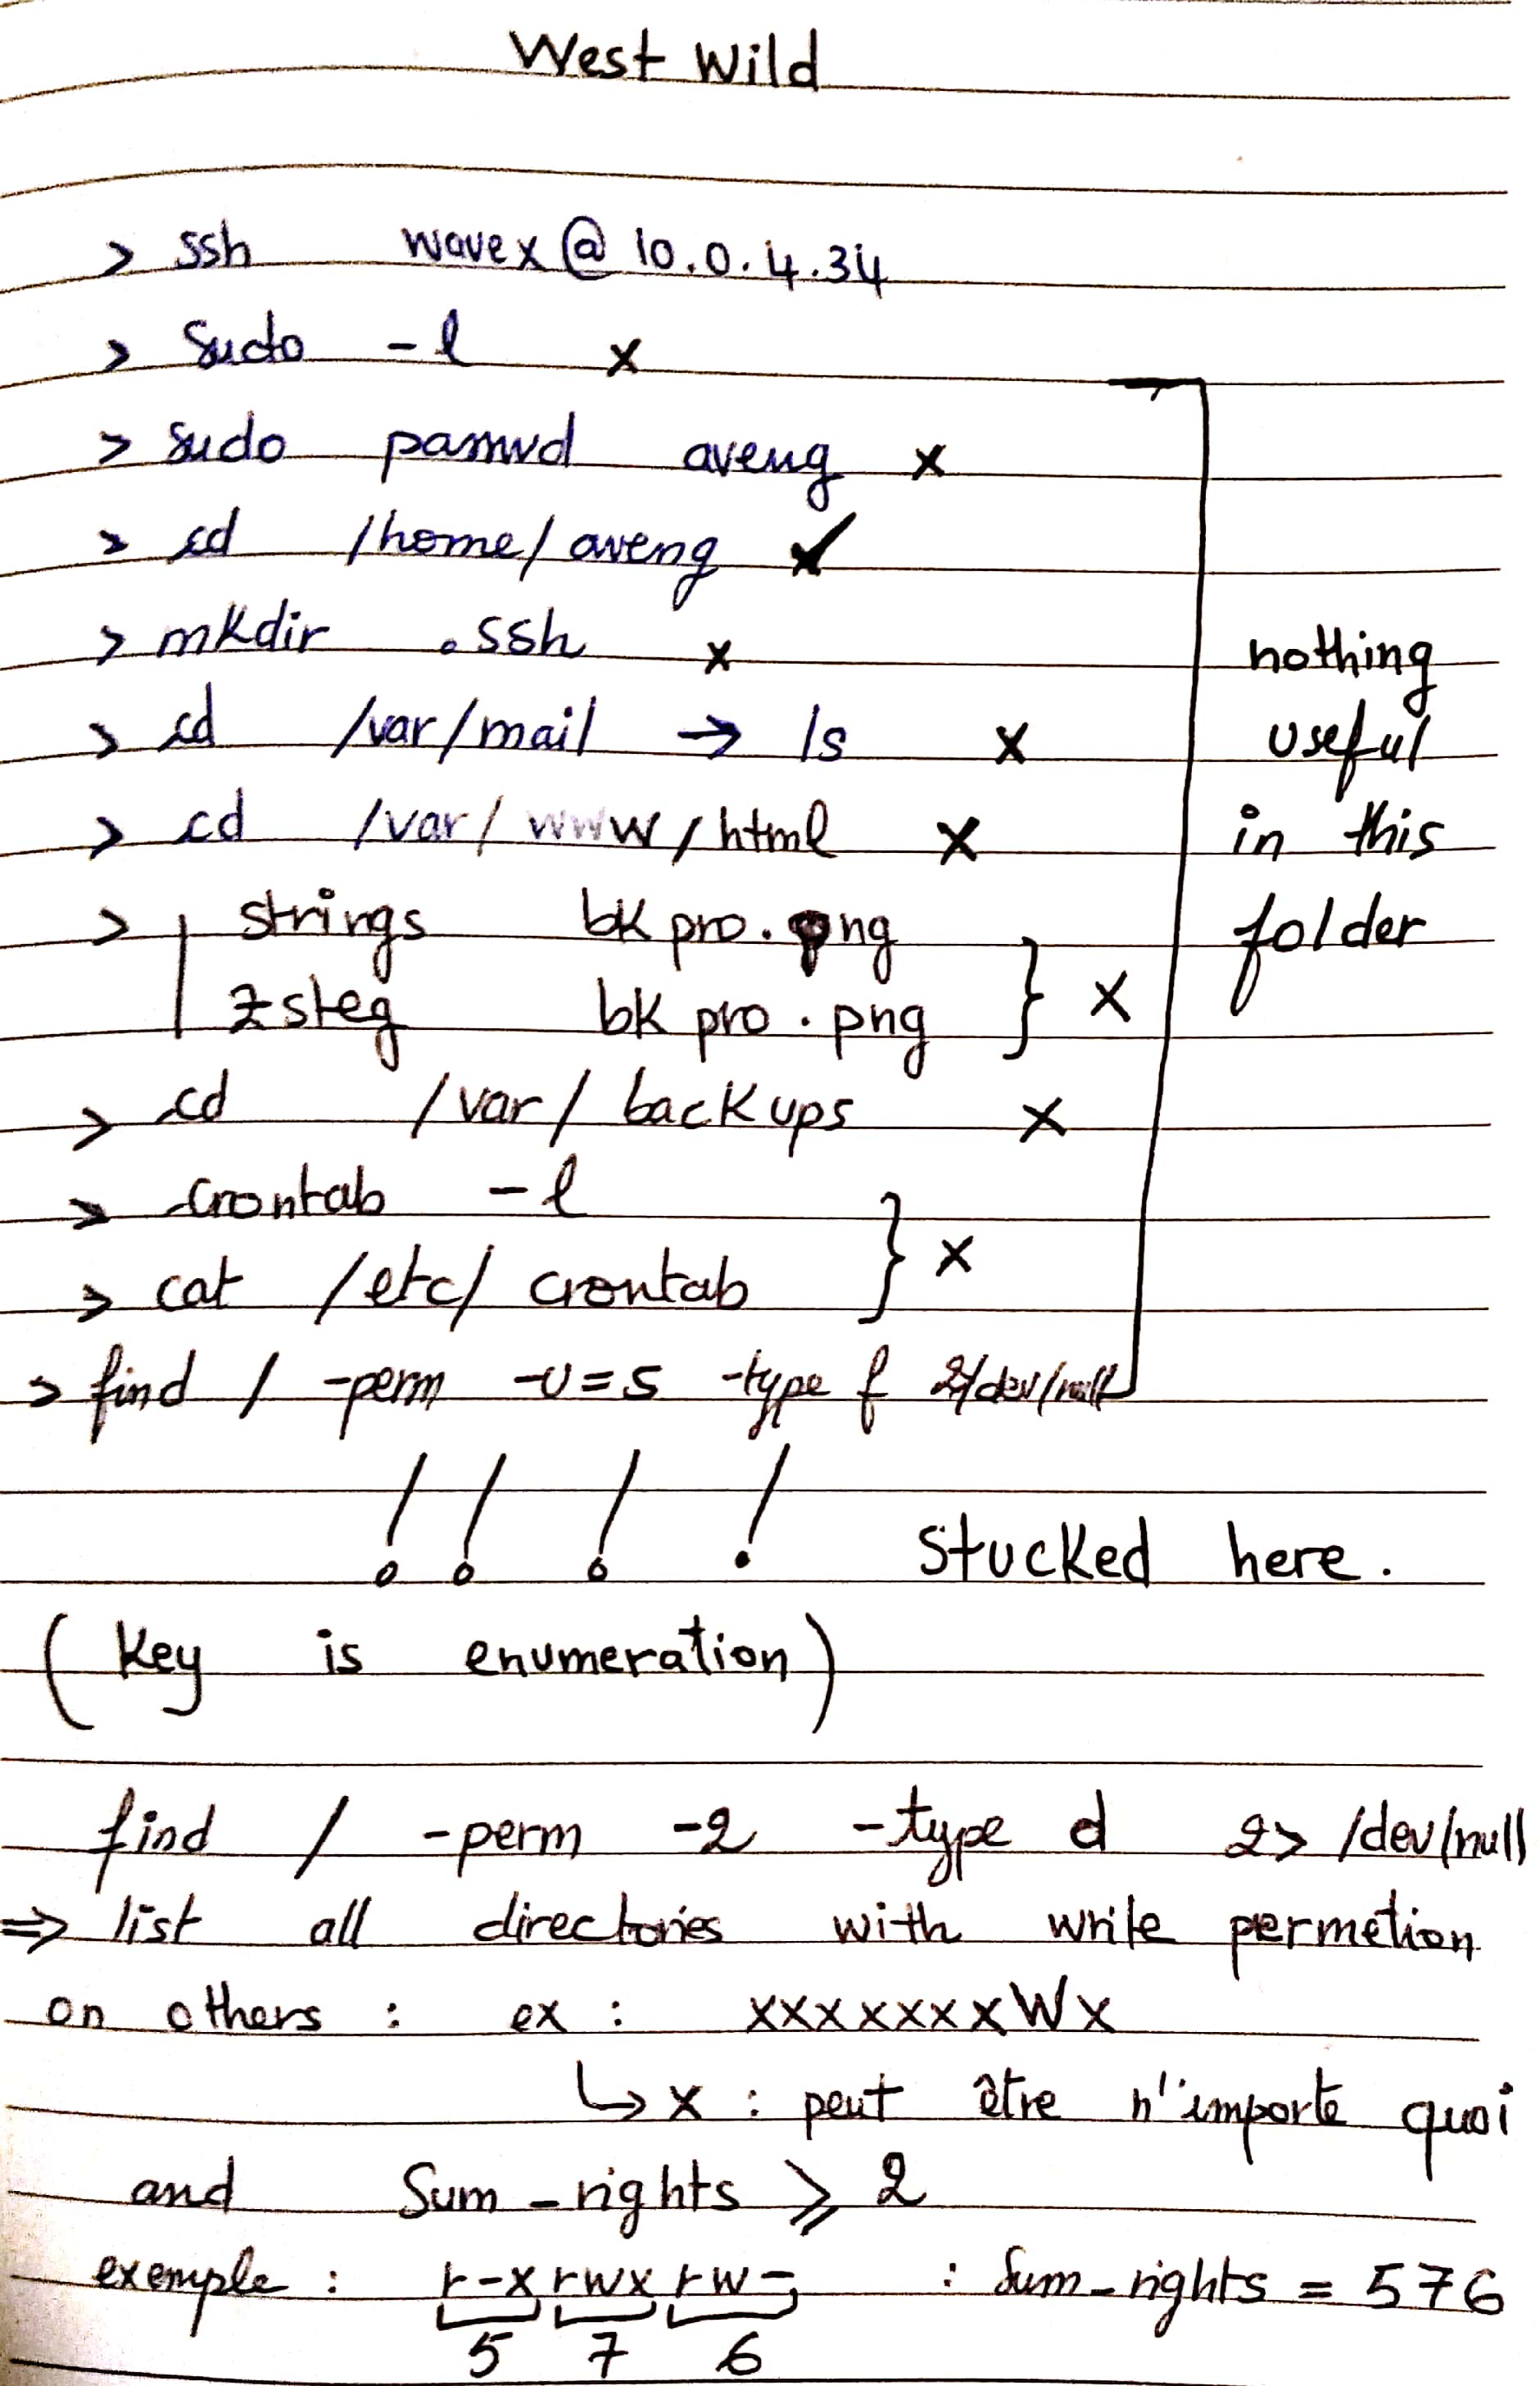 West Wild
> ssh wavex@10.0.4.34
> sudo -l x
> sudo passwd aveng x
> cd /home/aveng ✓
> mkdir .ssh x
> cd /var/mail → ls x
> cd /var/www/html x
> strings bkpro.png
zsteg bkpro.png } x
> cd /var/backups x
> crontab -l
> cat /etc/crontab } x
> find / -perm -u=s -type f 2>/dev/null
nothing
useful
in this
folder
! ! ! ! stucked here.
(Key is enumeration)
find / -perm -2 -type d 2> /dev/null
=> list all directories with write permetion
on others : ex : xxxxxxxWx
↳ x : peut être n'importe quoi
and Sum_rights ⩾ 2
exemple : r-xrwxrw- : Sum_rights = 576
5 7 6